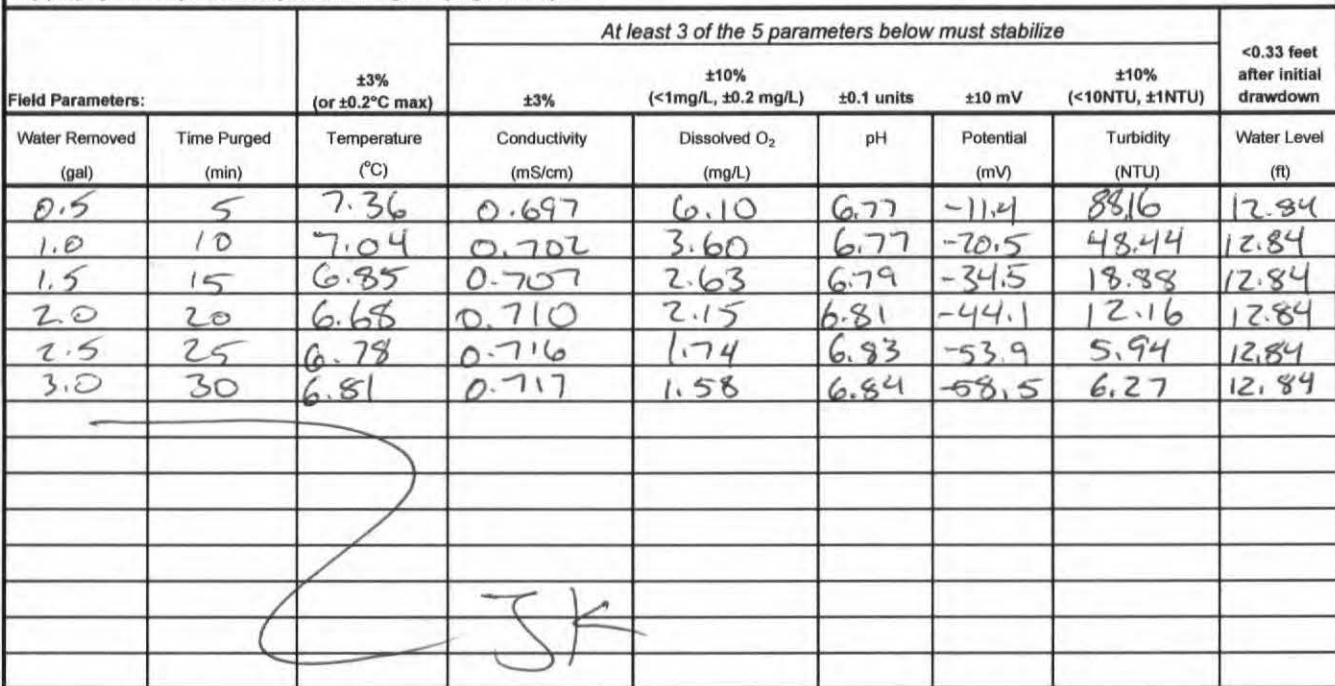 At least 3 of the 5 parameters below must stabilize
Field Parameters: ±3% (or ±0.2°C max) ±3% ±10% (<1mg/L, ±0.2 mg/L) ±0.1 units ±10 mV ±10% (<10NTU, ±1NTU) <0.33 feet after initial drawdown
Water Removed Time Purged Temperature Conductivity Dissolved O₂ pH Potential Turbidity Water Level
(gal) (min) (°C) (mS/cm) (mg/L) (mV) (NTU) (ft)
0.5 5 7.36 0.697 6.10 6.77 -11.4 88.16 12.84
1.0 10 7.04 0.702 3.60 6.77 -20.5 48.44 12.84
1.5 15 6.85 0.707 2.63 6.79 -34.5 18.88 12.84
2.0 20 6.68 0.710 2.15 6.81 -44.1 12.16 12.84
2.5 25 6.78 0.716 1.74 6.83 -53.9 5.94 12.84
3.0 30 6.81 0.717 1.58 6.84 -58.5 6.27 12.84
JK